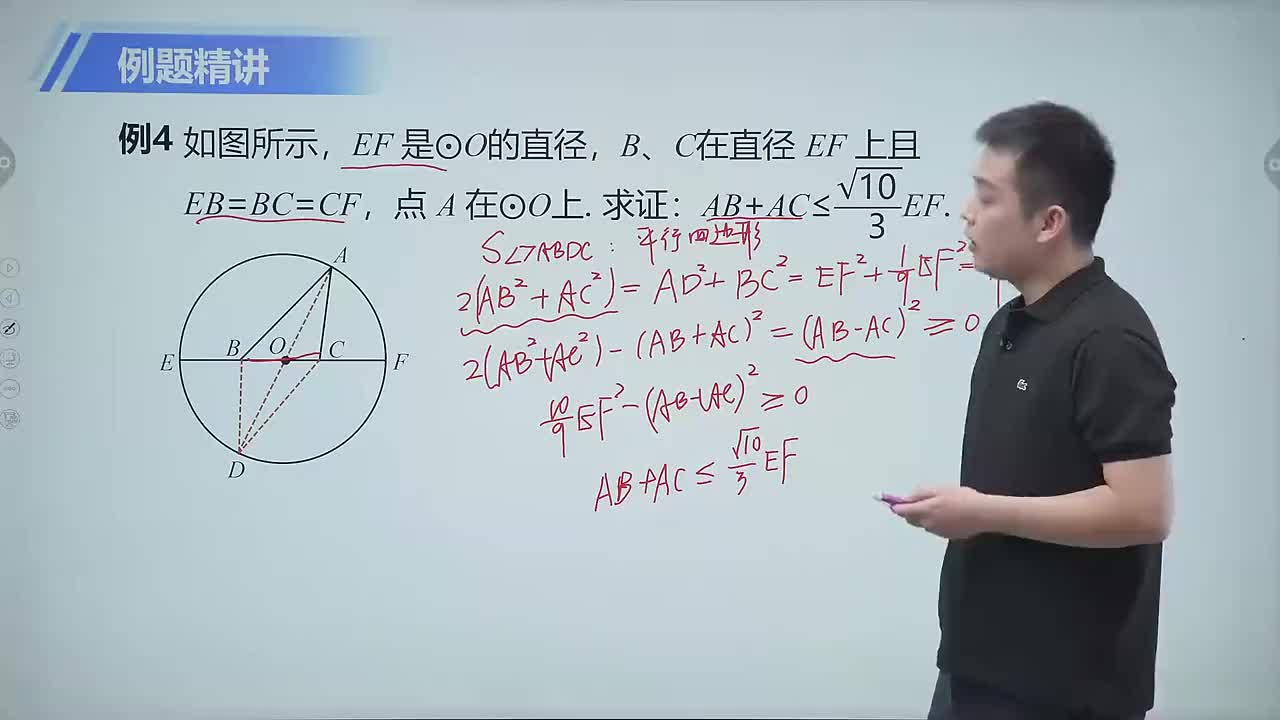 例题精讲
例4 如图所示，EF 是⊙O的直径，B、C在直径 EF 上且
EB=BC=CF，点 A 在⊙O上. 求证：AB+AC≤\frac{\sqrt{10}}{3}EF.
▱ABDC：平行四边形
2(AB²+AC²)=AD²+BC²=EF²+\frac{1}{9}EF²=
2(AB²+AC²)-(AB+AC)²=(AB-AC)²≥0
\frac{10}{9}EF²-(AB+AC)²≥0
AB+AC≤\frac{\sqrt{10}}{3}EF
A
E B O C F
D